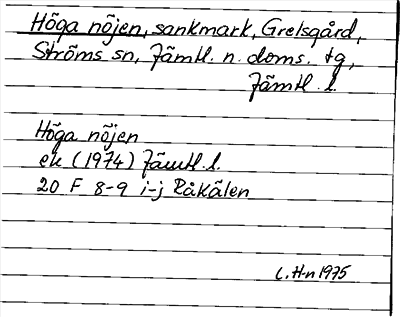 Höga nöjen, sankmark, Grelsgård,
Ströms sn, Jämtl. n. doms. tg,
Jämtl. l.
Höga nöjen
ek (1974) Jämtl. l.
20 F 8-9 i-j Råkälen
C. H-n 1975